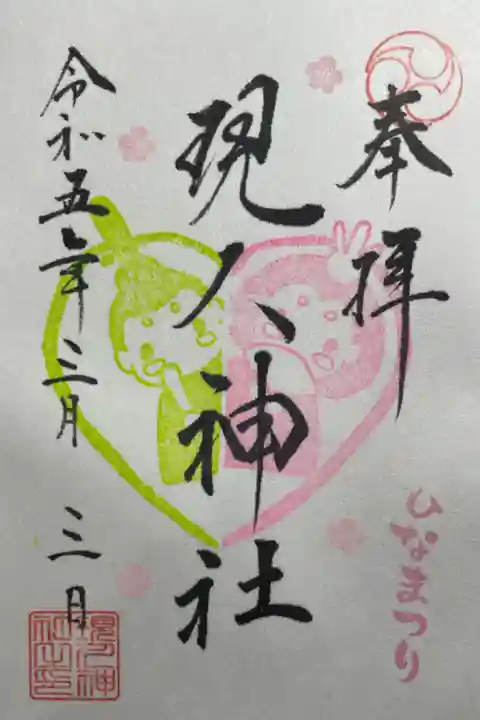 奉拝
ひなまつり
現人神社
令和五年三月三日
現人神社之印